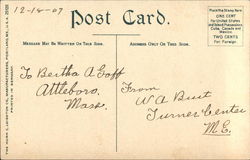 12-18-07
Post Card.
Place the Stamp Here
ONE CENT
For United States
and Island Possessions
Cuba, Canada and
Mexico.
TWO CENTS
For Foreign
MESSAGE MAY BE WRITTEN ON THIS SIDE.
ADDRESS ONLY ON THIS SIDE.
To Bertha A Goff
Attleboro,
Mass.
From
W A Burt
Turner Center
M.E.